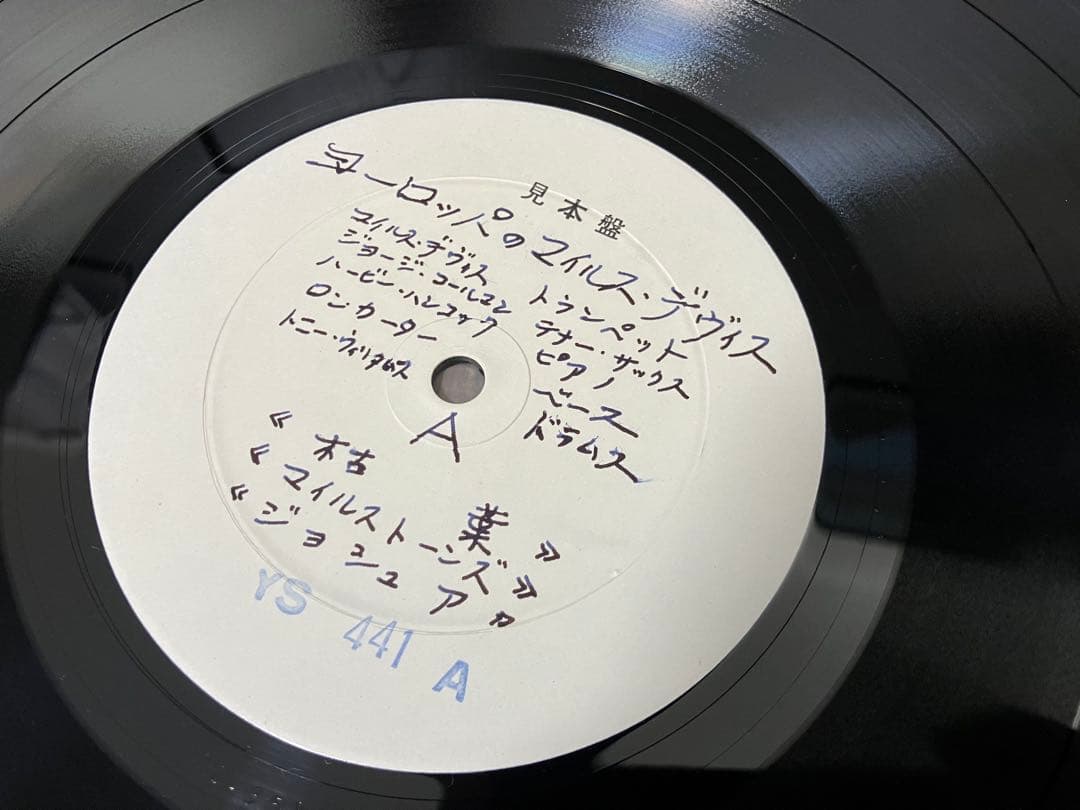 見本盤
ヨーロッパのマイルス・デヴィス
マイルス・デヴィス トランペット
ジョージ・コールマン テナー・サックス
ハービン・ハンコック ピアノ
ロン・カーター ベース
トニー・ウィリアムス ドラムス
A
《枯葉》
《マイルストーンズ》
《ジョシュア》
YS 441 A